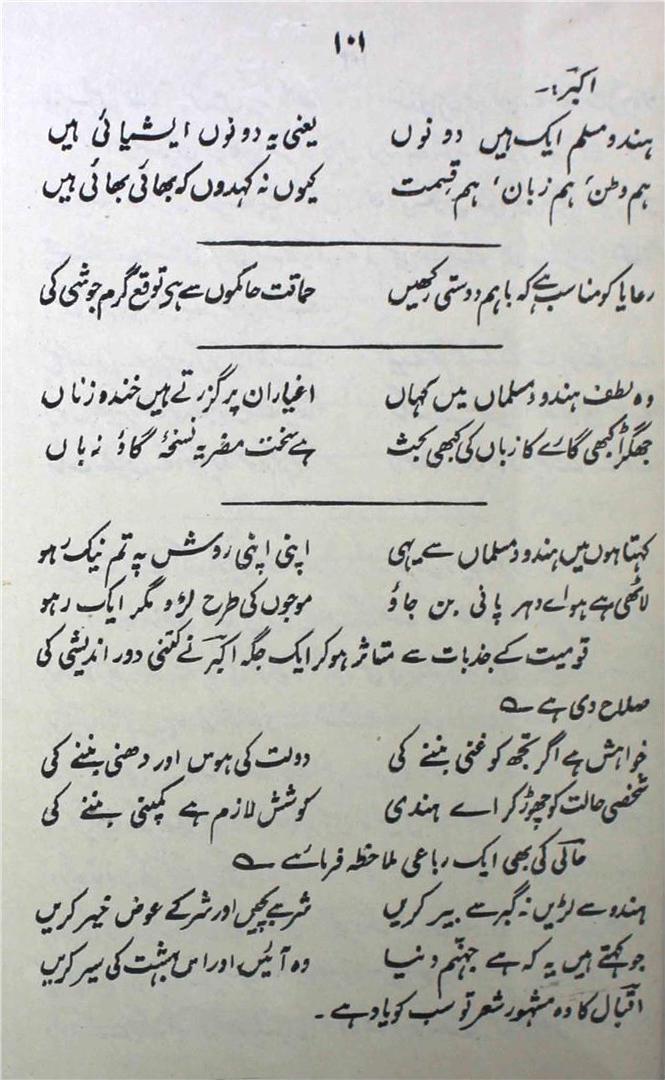 ۱۰۱
اکبرؔ :۔
ہندو مسلم ایک ہیں دونوں یعنی یہ دونوں ایشیائی ہیں
ہم وطن، ہم زبان، ہم قسمت کیوں نہ کہدوں کہ بھائی بھائی ہیں
رعایا کو مناسب ہے کہ باہم دوستی رکھیں حماقت حاکموں سے ہی توقع گرم جوشی کی
وہ لطف ہندو و مسلماں میں کہاں اغیار ان پر گزرتے ہیں خندہ زناں
جھگڑا کبھی گائے کا زباں کی کبھی بحث ہے سخت مضر یہ نسخۂ گاؤ زباں
کہتا ہوں میں ہندو و مسلماں سے یہی اپنی اپنی روش پہ تم نیک رہو
لاٹھی ہے ہوائے دہر پانی بن جاؤ موجوں کی طرح لڑو مگر ایک رہو
قومیت کے جذبات سے متاثر ہو کر ایک جگہ اکبرؔ نے کتنی دور اندیشی کی
صلاح دی ہے ؎
خواہش ہے اگر تجھ کو غنی بننے کی دولت کی ہوس اور دھنی بننے کی
شخصی حالت کو چھوڑ کر اے ہندی کوشش لازم ہے کمپنی بننے کی
حالیؔ کی بھی ایک رباعی ملاحظہ فرمائیے ؎
ہندو سے لڑیں نہ گبر سے بیر کریں شر سے بچیں اور شر کے عوض خیر کریں
جو کہتے ہیں یہ کہ ہے جہنم دنیا وہ آئیں اور اس بہشت کی سیر کریں
اقبالؔ کا وہ مشہور شعر تو سب کو یاد ہے ۔